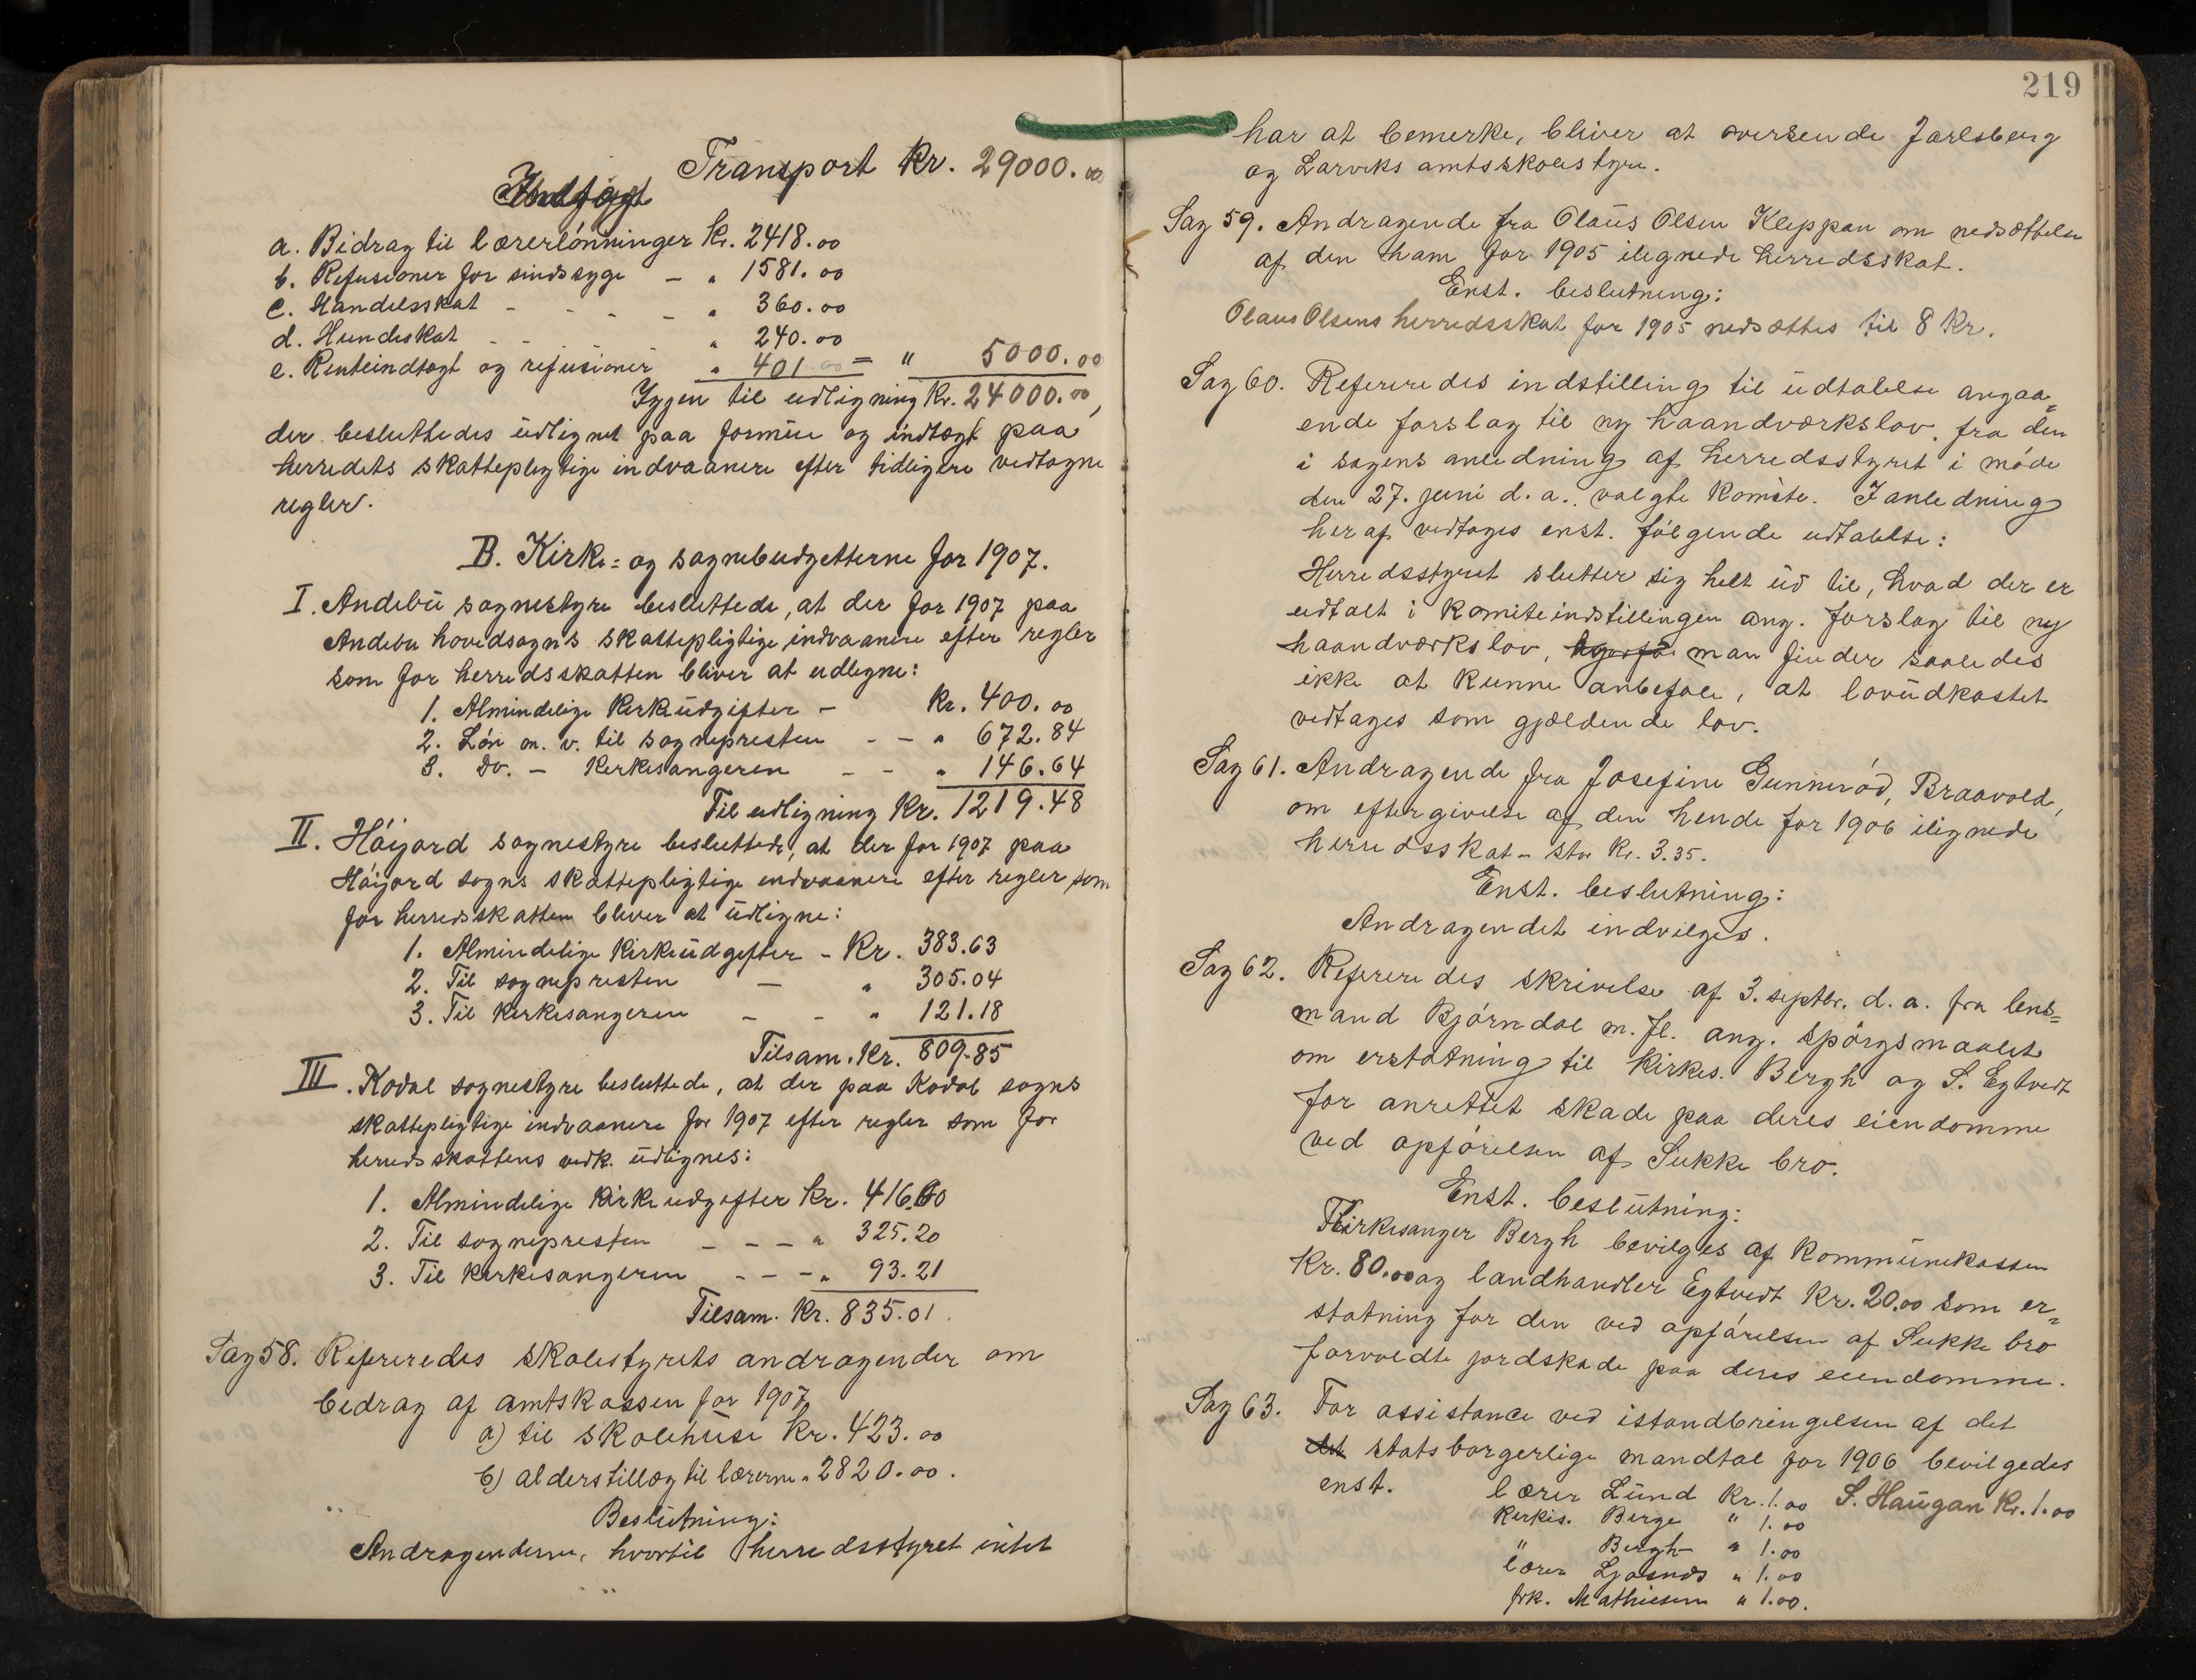 Transport Kr. 29000.00
Indtægt
a. Bidrag til lærerlønninger Kr. 2418.00
b. Refusioner for sindssyge — " 1581.00
c. Handelsskat - - - - " 360.00
d. Hundeskat - - - " 240.00
e. Renteindtægt og refusioner " 401.00 = " 5000.00
Igjen til udligning Kr. 24000.00,
der besluttedes udlignet paa formue og indtægt paa
herredets skattepligtige indvaanere efter tidligere vedtagne
regler.
B. Kirke- og sognebudgetterne for 1907.
I. Andebu sognestyre besluttede, at der for 1907 paa
Andebu hovedsogns skattepligtige indvaanere efter regler
som for herredsskatten bliver at udligne:
1. Almindelige kirkeudgifter — Kr. 400.00
2. Løn m. v. til sognepresten - — " 672.84
3. Do. — kirkesangeren - - " 146.64
Til udligning Kr. 1219.48
II. Høijord sognestyre besluttede, at der for 1907 paa
Høijord sogns skattepligtige indvaanere efter regler som
for herredsskatten bliver at udligne:
1. Almindelige kirkeudgifter - Kr. 383.63
2. Til sognepresten — " 305.04
3. Til kirkesangeren - - " 121.18
Tilsam. Kr. 809.85
III. Kodal sognestyre besluttede, at der paa Kodal sogns
skattepligtige indvaanere for 1907 efter regler som for
herredsskattens vedk. udlignes:
1. Almindelige kirkeudgifter Kr. 416.60
2. Til sognepresten - - - " 325.20
3. Til kirkesangeren - - - " 93.21
Tilsam. Kr. 835.01.
Sag 58. Refereredes skolestyrets andragender om
bidrag af amtskassen for 1907
a) til skolehuse Kr. 423.00
b) alderstillæg til lærerne " 2820.00.
Beslutning:
Andragenderne, hvortil herredsstyret intet
219
har at bemerke, bliver at oversende Jarlsberg
og Larviks amtsskolestyre.
Sag 59. Andragende fra Olaus Olsen Kleppan om nedsættelse
af den ham for 1905 ilignede herredsskat.
Enst. beslutning:
Olaus Olsens herredsskat for 1905 nedsættes til 8 Kr.
Sag 60. Refereredes indstilling til udtalelse angaa-
ende forslag til ny haandværkslov, fra den
i sagens anledning af herredsstyret i møde
den 27. juni d. a. valgte komite. I anledning
heraf vedtages enst. følgende udtalelse:
Herredsstyret slutter sig helt ud til, hvad der er
udtalt i komiteindstillingen ang. forslag til ny
haandværkslov, man finder saaledes
ikke at kunne anbefale, at lovudkastet
vedtages som gjældende lov.
Sag 61. Andragende fra Josefine Gunnerød, Braavold,
om eftergivelse af den hende for 1906 ilignede
herredsskat - stor Kr. 3.35.
Enst. beslutning:
Andragendet indvilges.
Sag 62. Refereredes skrivelse af 3. septbr. d. a. fra lens-
mand Bjørndal m. fl. ang. spørgsmaalet
om erstatning til kirkes. Bergh og S. Egtvedt
for anrettet skade paa deres eiendomme
ved opførelsen af Sukke bro.
Enst. beslutning:
Kirkesanger Bergh bevilges af kommunekassen
Kr. 80.00 og landhandler Egtvedt Kr. 20.00 som er-
statning for den ved opførelsen af Sukke bro
forvoldte jordskade paa deres eiendomme.
Sag 63. For assistance ved istandbringelsen af det
det statsborgerlige mandtal for 1906 bevilgedes
enst. lærer Lund Kr. 1.00 S. Haugan Kr. 1.00
Kirkes. Berge " 1.00
" Bergh " 1.00
lærer Ljosnes " 1.00
frk. Mathiesen " 1.00.